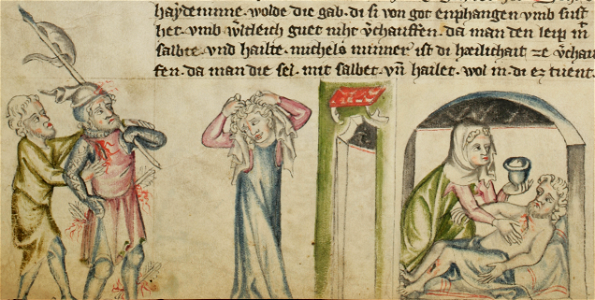 haydeninne. wolde die gab. di si von got enphangen vmb sust
het. vmb w̓tleich guet niht v̓chauffen. da man den leip m̄
salbte. vnd hailte. michels minner ist di hæilichait ze v̓chau
fen. da man die sel. mit salbet. vn̄ hailet. wol in. di ez tuent.